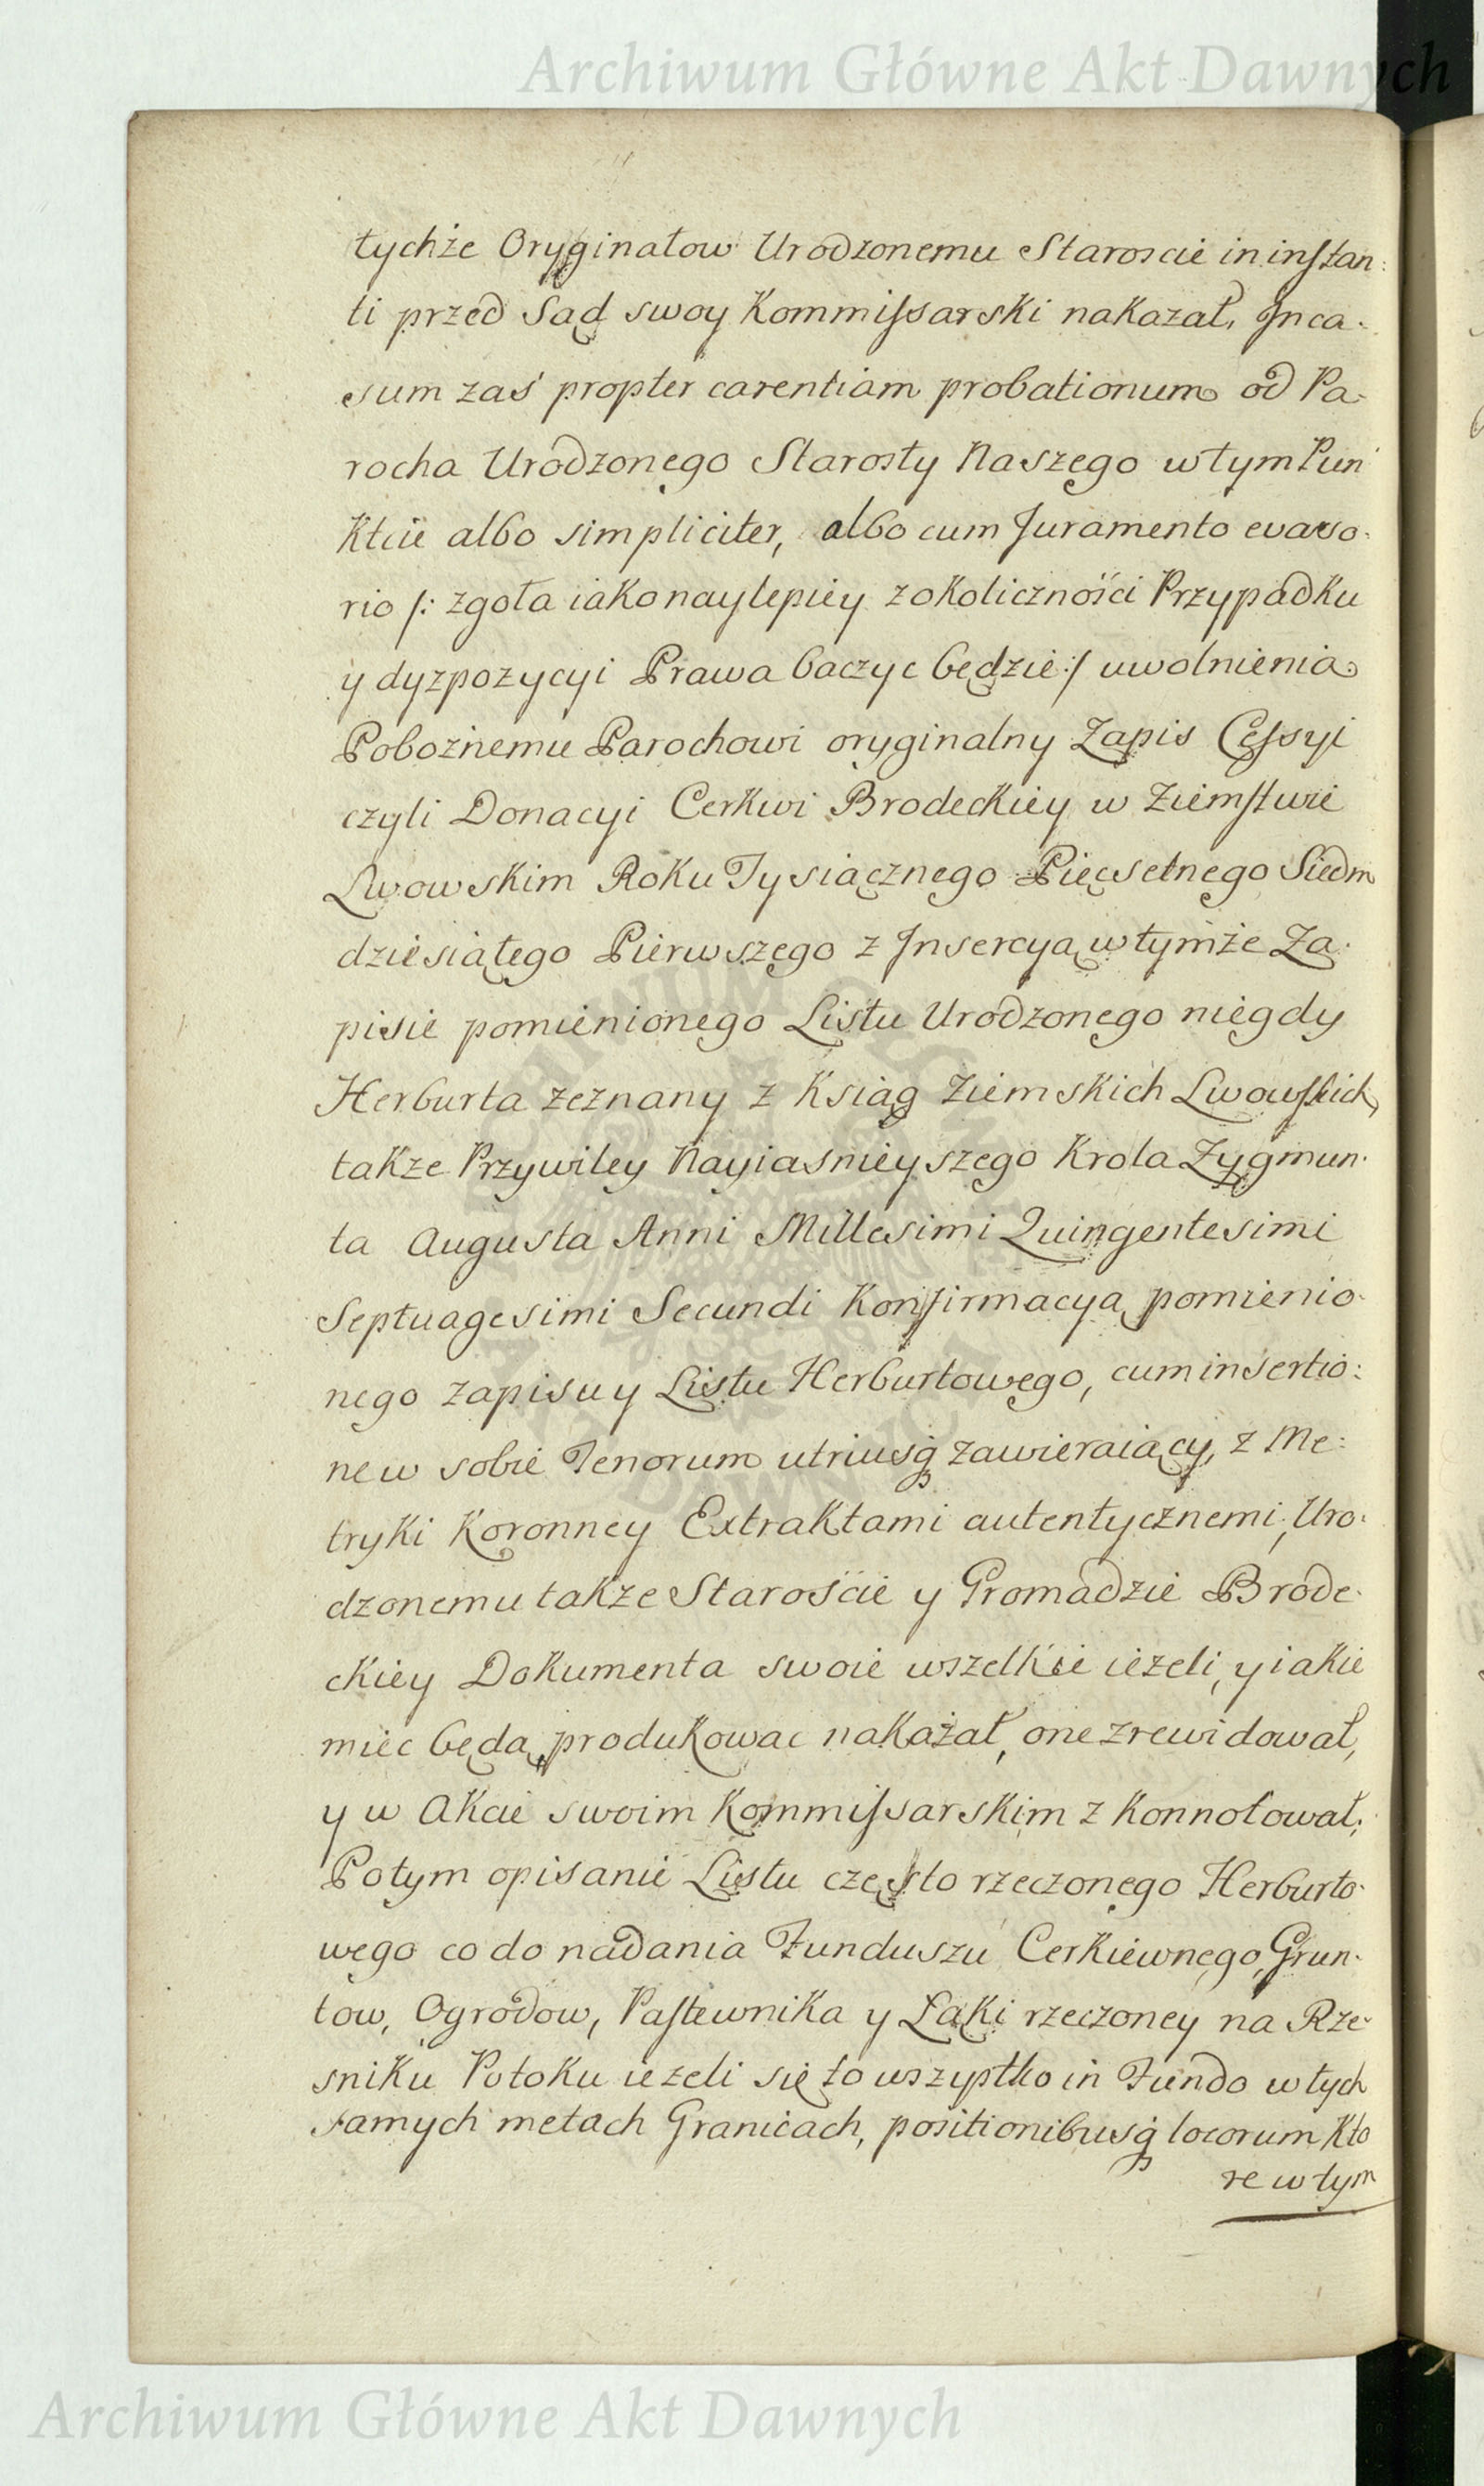 Archiwum Główne Akt Dawnych
tychże Oryginałow Urodzonemu Staroscie in instan:
ti przed Sąd swoy Kommissarski nakazał, Jn ca-
sum zaś propter carentiam probationum od Pa-
rocha Urodzonego Starosty Naszego w tym Pun
Kcie albo simpliciter, albo cum Juramento evaso-
rio /: zgoła iako naylepiey z okoliczności Przypadku
y dyzpozycyi Prawa baczyc będzie :/ uwolnienia
Pobożnemu Parochowi oryginalny Zapis Cessyi
czyli Donacyi Cerkwi Brodeckiey w Ziemstwie
Lwowskim Roku Tysiącznego Pięcsetnego Siedm
dziesiątego Pierwszego z Jnsercyą w tymże Za-
pisie pomienionego Listu Urodzonego niegdy
Herburta zeznany z Ksiąg Ziemskich Lwowskich,
takze Przywiley Nayiasnieyszego Krola Zygmun-
ta Augusta Anni Millesimi Quingentesimi
Septuagesimi Secundi Konfirmacyą pomienio-
nego zapisu y Listu Herburtowego, cum insertio:
ne w sobie Tenorum utriusq zawieraiący, z Me:
tryki Koronney Extraktami autentycznemi, Uro-
dzonemu takze Starości̇e y Gromadzie Brode-
ckiey Dokumenta swoie wszelkie ieżeli, y iakie
miec będą, produkowac nakażał, one zrewidował,
y w Akcie swoim Kommissarskim z konnotował;
Potym opisanie Listu często rzeczonego Herburto-
wego co do nadania Funduszu Cerkiewnego, Grun-
tow, Ogrodow, Pastewnika y Łąki rzeczoney na Rze-
sniku Potoku ieżeli się to wszystko in Fundo w tych
samych metach Granicach, positionibusq locorum Kto
re w tym
Archiwum Główne Akt Dawnych